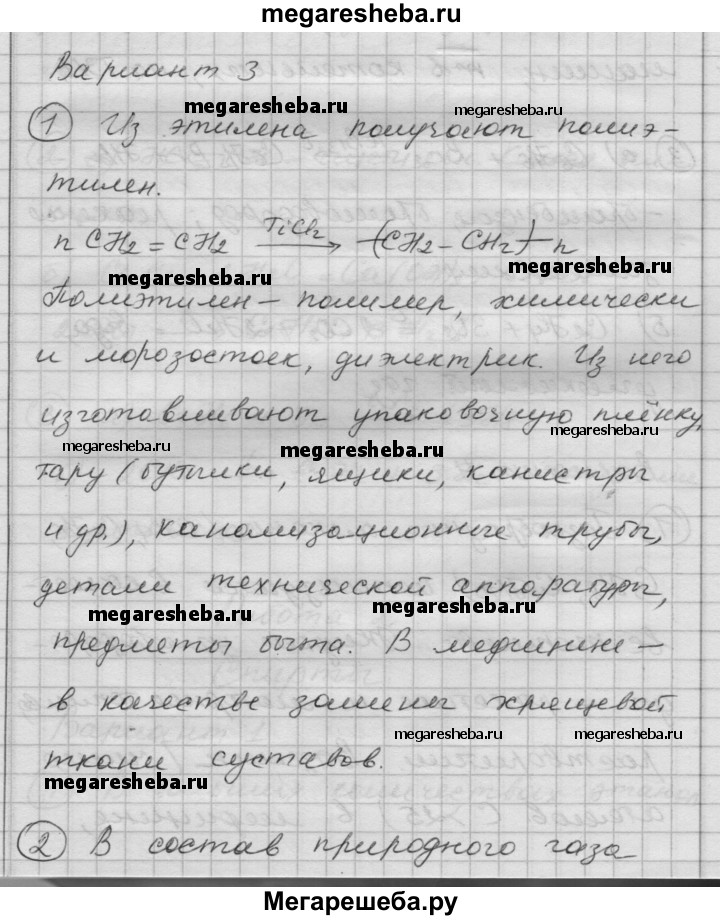 megaresheba.ru
Вариант 3
megaresheba.ru megaresheba.ru
1 Из этилена получают полиэ-
тилен.
n CH2 = CH2 TiCl2 → (CH2 – CH2) n
megaresheba.ru megaresheba.ru
Полиэтилен – полимер, химически
и морозостоек, диэлектрик. Из него
изготавливают упаковочную плёнку,
megaresheba.ru megaresheba.ru megaresheba.ru
тару (бутылки, ящики, канистры
и др.), канализационные трубы,
детали технической аппаратуры,
megaresheba.ru megaresheba.ru
предметы быта. В медицине –
в качестве замены хрящевой
ткани суставов.
megaresheba.ru megaresheba.ru
megaresheba.ru
2 В состав природного газа
Мегарешеба.ру